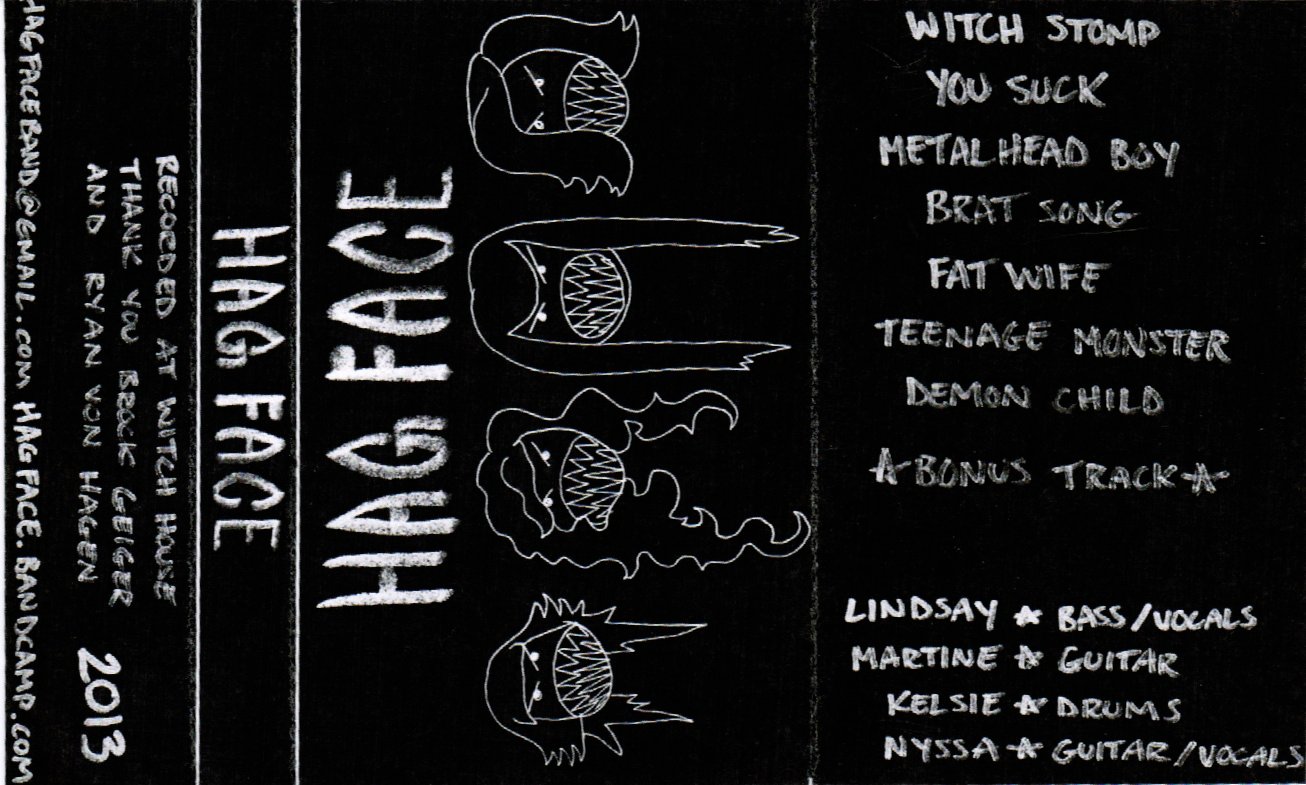 WITCH STOMP
YOU SUCK
METALHEAD BOY
BRAT SONG
FAT WIFE
TEENAGE MONSTER
DEMON CHILD
☆BONUS TRACK☆
LINDSAY ☆ BASS/VOCALS
MARTINE ☆ GUITAR
KELSIE ☆ DRUMS
NYSSA ☆ GUITAR/VOCALS
HAG FACE
HAG FACE
RECORDED AT WITCH HOUSE
THANK YOU BROCK GEIGER
AND RYAN VON HAGEN 2013
HAGFACEBAND@GMAIL.COM HAGFACE.BANDCAMP.COM